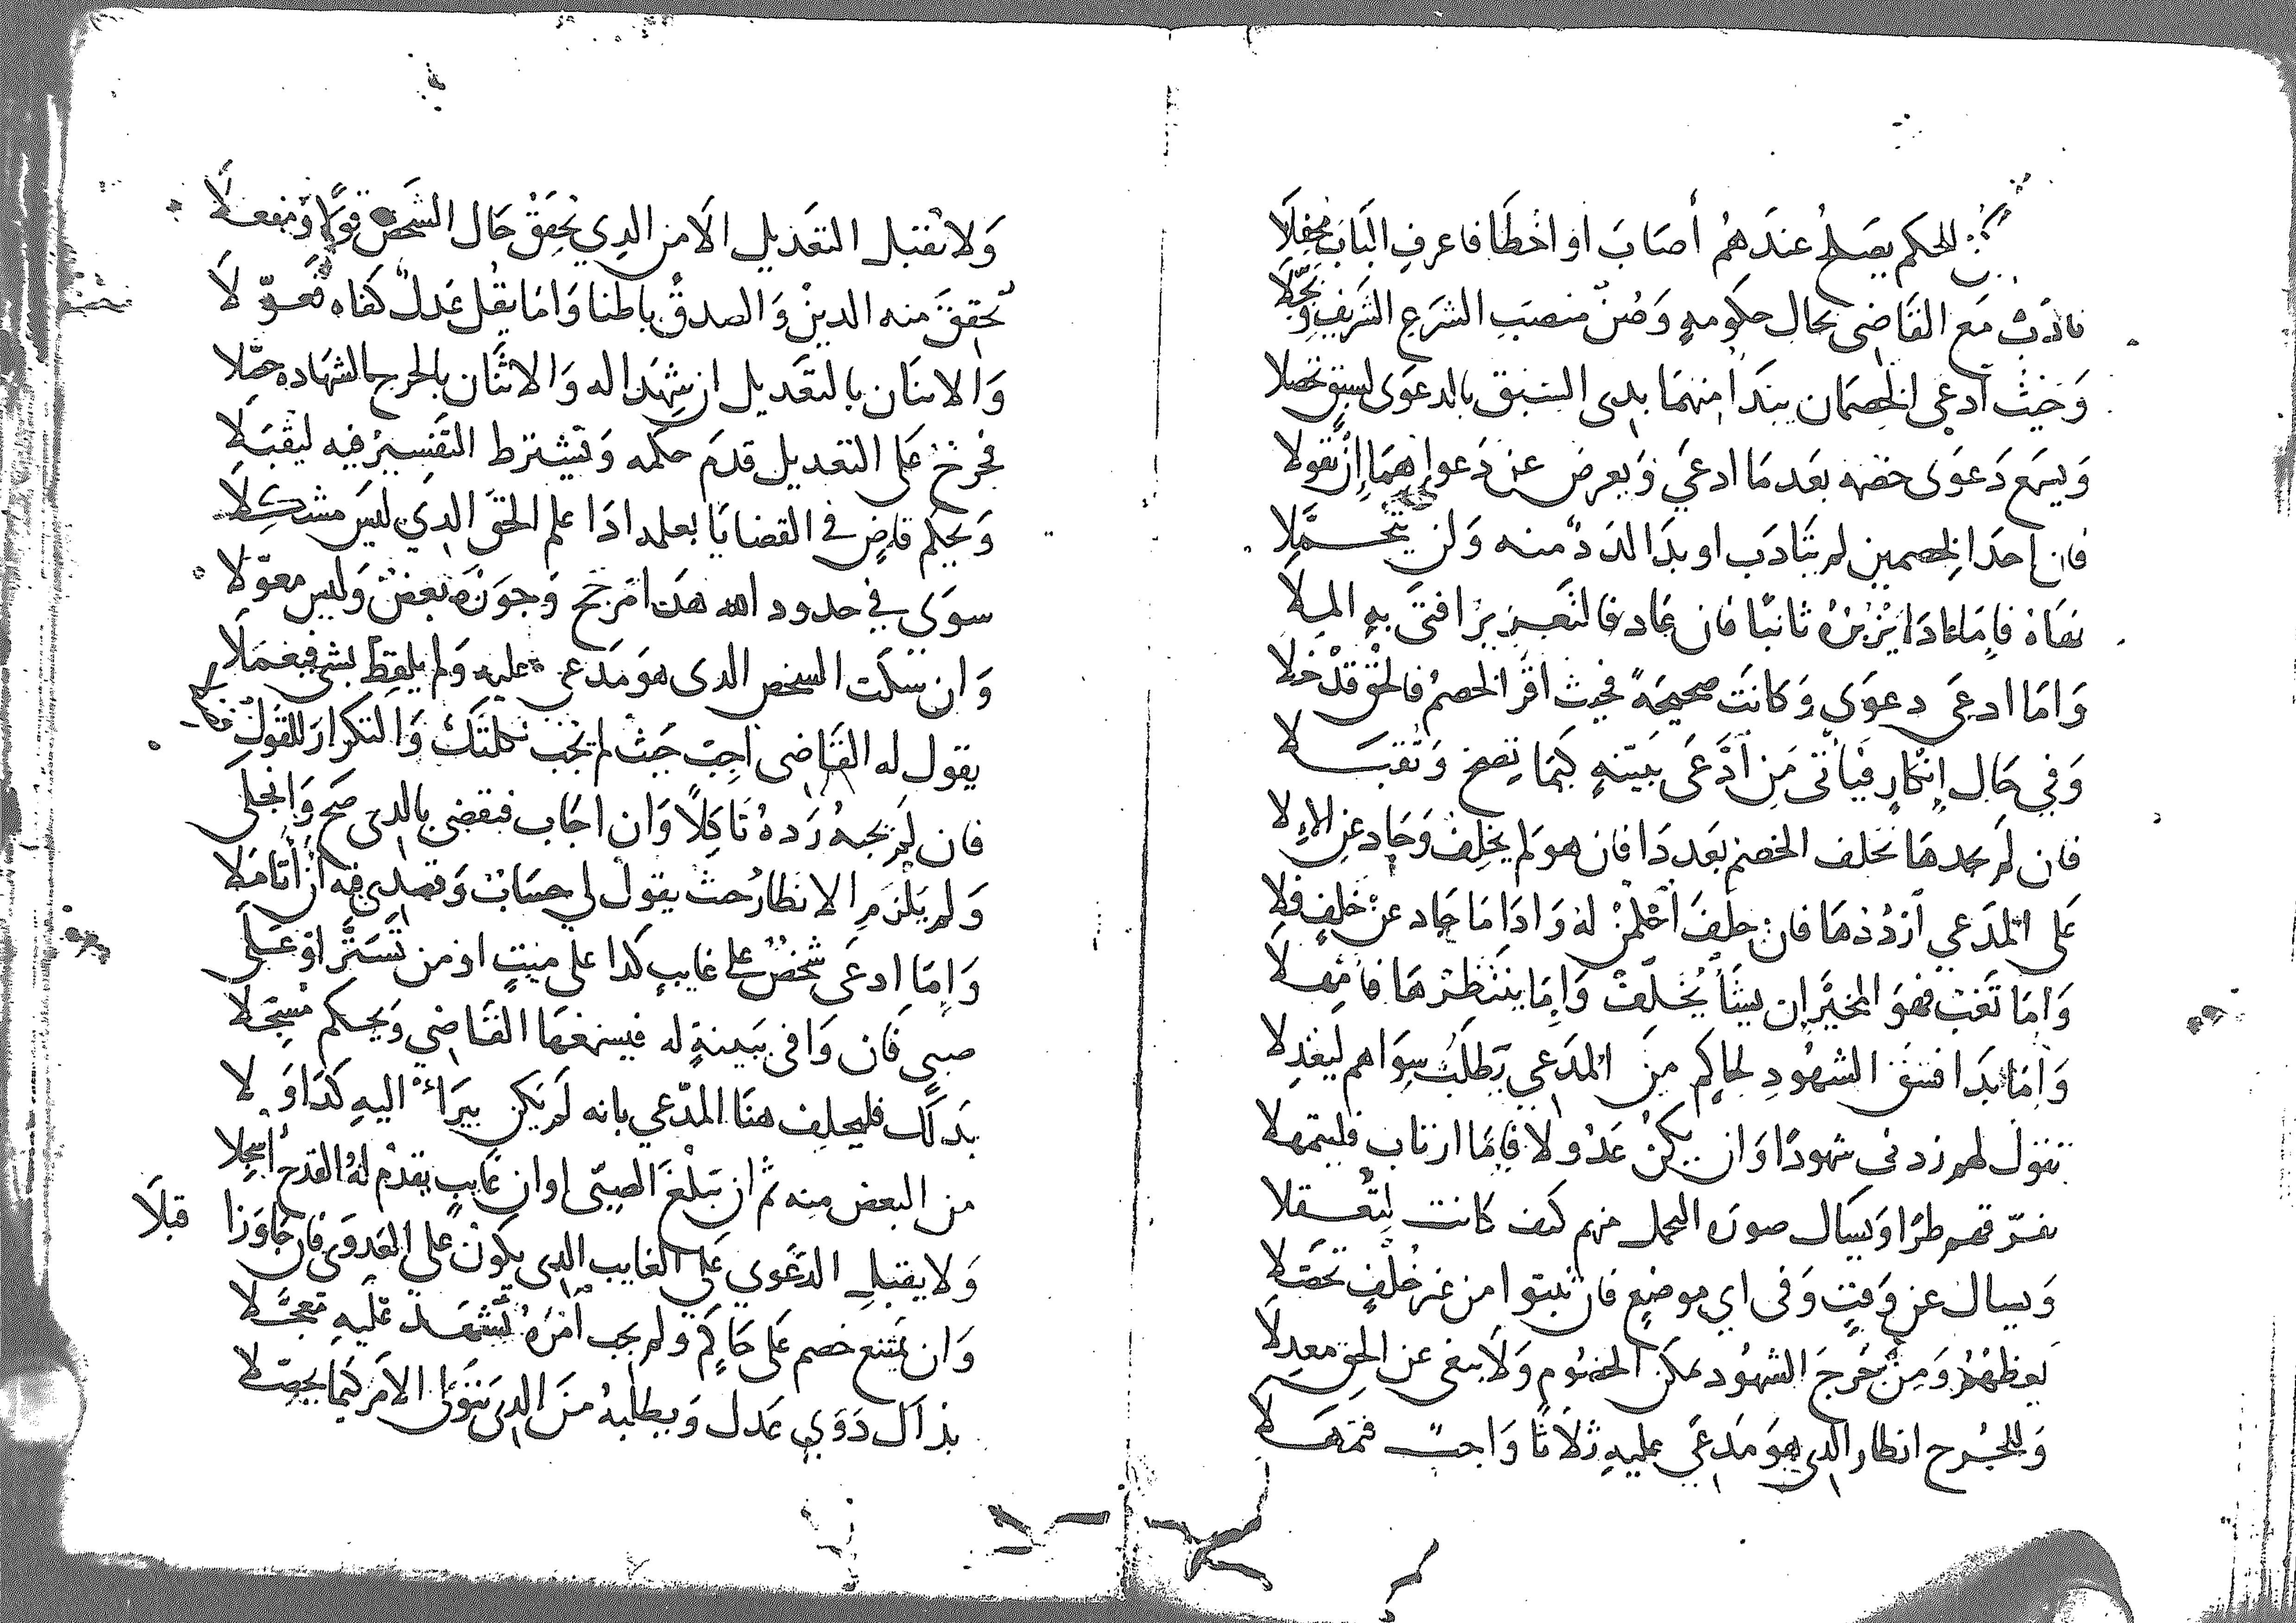 للحكم يصلح عندهم أصاب او اخطا فاعرف الباب محفلا
فاذن مع القاضي بحال حكومةٍ وصُن منصب الشرع الشريف وبجّلا
وحيث ادعى الخصمان يبتدا منهما بذي السبق بالدعوى لسبق تحصلا
ويسمع دعوى خصمه بعد ما ادعى ويعرض عن دعواهما إن تقولا
فان احد الخصمين لم يتادب او بدا اللدد منه ولن يتحمّلا
نهاه فاما عاد يزبره ثانيًا فان عاد فالتعزير افتى به الملا
واما ادعى دعوى وكانت صحيحةً فحيث اقر الخصم فالحق قد خلا
وفي حال إنكارٍ فياتى من ادّعى ببيّنةٍ كيما تصح وتقبلا
فان لم يجدها حلف الخصم بعد دا فان هو لم يحلف وحاد عن الإلا
على المدعي ارددها فان حلف احكمن له وادا ما حاد عن حلفٍ فلا
واما تغب فهو المخير ان يشأ يُحلّف واما ينتظرها فامهلا
واما بدا فسق الشهود لحاكم من المدعي يطلب سواهم ليعدلا
تقول لهم زدني شهودًا وان يكن عدولا فاما ارتاب فليتمهلا
يفرّقهم طرا ويسال صورة التحمل منهم كيف كانت ليتعقلا
ويسال عن وقتٍ وفى اي موضعٍ فان ثبتوا من غير خُلفٍ تحصلا
يعظهم ومن جرح الشهود يمكن الخصوم ولا يبغى عن الحق معدلا
وللجرح انظار الدى هو مدعى عليه ثلاثًا واجبٌ فتمهلا
ولا تقبل التعديل الا من الدي يحقق حال الشخص قولًا ومفعلا
تحقق منه الدين والصدق باطنا واما يقل عدلٌ كفاه فعوّلا
والاثنان بالتعديل ان شهدا له والاثنان بالجرح الشهادة حمّلا
فجرحٌ على التعديل قدم حكمه ويشترط التفسير فيه ليقبلا
ويحكم قاضٍ في القضايا بعلمه ادا علم الحق الدي ليس مشكلا
سوى في حدود الله هدا مرجح وجوزه بعضٌ وليس معوّلا
وان سكت الشخص الدى هو مدعى عليه ولم يلفظ بشي فيعملا
يقول له القاضى اجب حيث لم تجب نكلتك والتكرار للقول
فان لم يجبه رده ناكلًا وان اجاب فيقضى بالدى صح وانجلى
ولم يلزم الانظار حيث يقول لي حسابٌ وقصدي فيه أن أتاملا
واما ادعى شخصٌ على غايبٍ كدا على ميتٍ او من تستّر او على
صبى فان وافى ببينةٍ له فيسمعها القاضي ويحكم مسجلا
بدلك فليحلف هنا المدّعي بانه لم يكن يبراء اليه كدا ولا
من البعض منه ثم ان يبلغ الصبى اوان غايب يقدم له القدح اسجلا
ولا يقبل الدعوى على الغايب الدى يكون على العدوى فان جاوزا قبلا
وان يمتنع خصم على حاكم ولم يجب امره تشهد عليه تعجلا
بذاك دوي عدل ويطلبه من الدى يتولى الامر كيما يحصلا